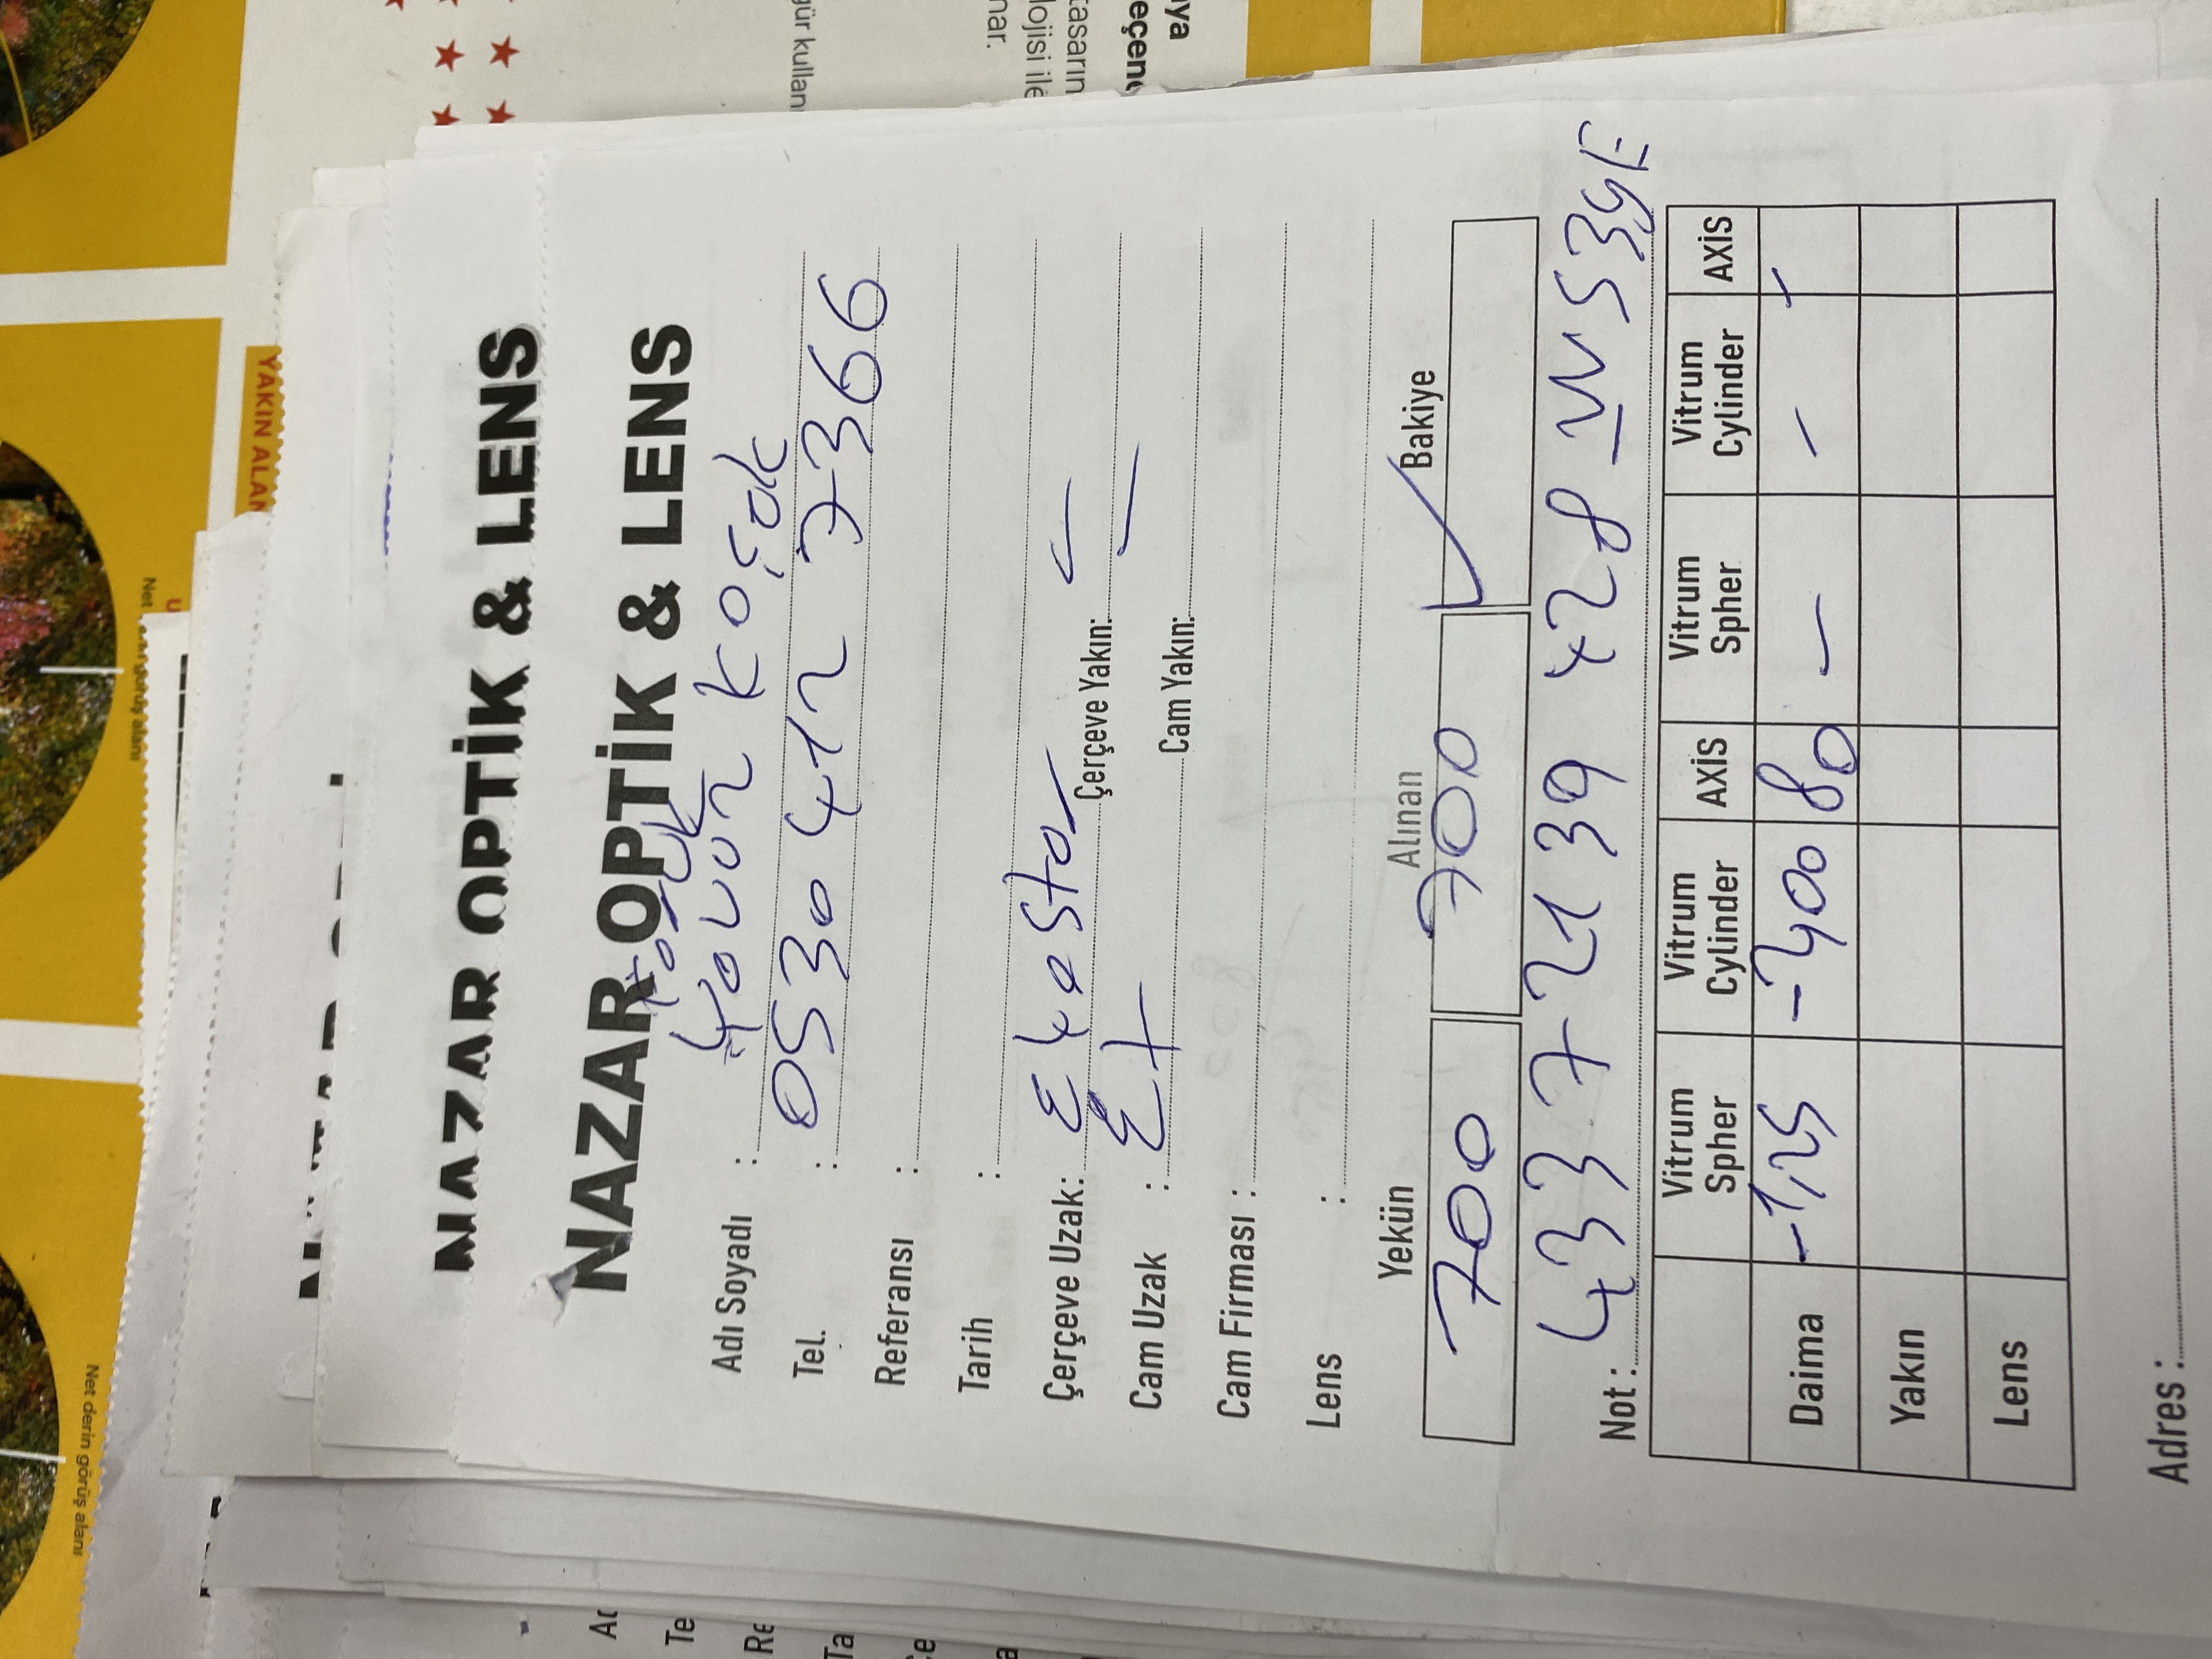 Net derin görüş alanı
Net yakın görüş alanı
YAKIN ALAN
NAZAR OPTİK & LENS
NAZAR OPTİK & LENS
Faruk
Adı Soyadı : Yavuz Koçak
Tel. : 0530 412 7366
Referansı :
Tarih :
Çerçeve Uzak: Ekestar Çerçeve Yakın: —
Cam Uzak : Ex Cam Yakın: —
Cam Firması :
Lens :
Yekün Alınan Bakiye
700 700 ✓
Not : 433 72139 428 539E
Vitrum Spher Vitrum Cylinder AXİS Vitrum Spher Vitrum Cylinder AXİS
Daima -1,25 -2,00 80 — — —
Yakın
Lens
Adres :